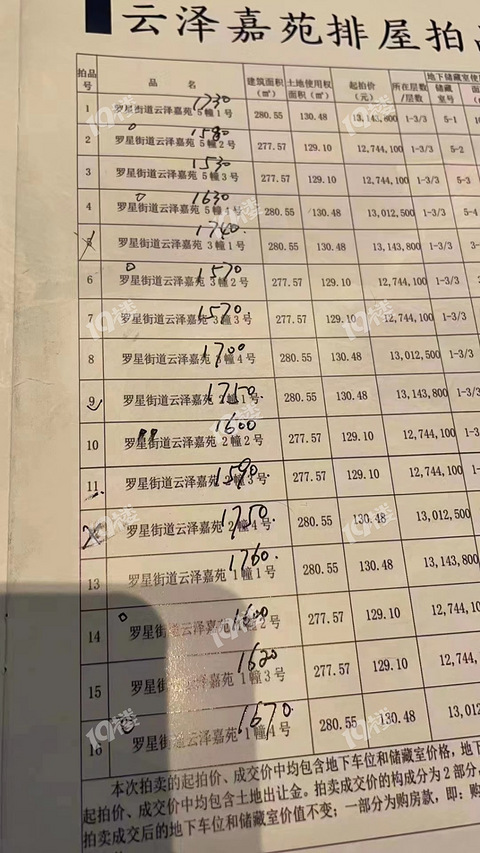 云泽嘉苑排屋拍
拍品号 品 名 建筑面积(㎡) 土地使用权面积(㎡) 起拍价(元) 所在层数/层数 地下储藏室使 储藏室号
1 罗星街道云泽嘉苑 5幢1号 1730 280.55 130.48 13,143,800 1-3/3 5-1
2 罗星街道云泽嘉苑 5幢2号 1580 277.57 129.10 12,744,100 1-3/3 5-2
3 罗星街道云泽嘉苑 5幢3号 1530 277.57 129.10 12,744,100 1-3/3 5-3
4 罗星街道云泽嘉苑 5幢4号 1630 280.55 130.48 13,012,500 1-3/3 5-4
5 罗星街道云泽嘉苑 3幢1号 1740 280.55 130.48 13,143,800 1-3/3 3-
6 罗星街道云泽嘉苑 3幢2号 1570 277.57 129.10 12,744,100 1-3/3
7 罗星街道云泽嘉苑 3幢3号 1570 277.57 129.10 12,744,100 1-3/3
8 罗星街道云泽嘉苑 3幢4号 1700 280.55 130.48 13,012,500 1-3/3
9 罗星街道云泽嘉苑 2幢1号 1750 280.55 130.48 13,143,800 1-3/3
10 罗星街道云泽嘉苑 2幢2号 1600 277.57 129.10 12,744,100 1-3
11 罗星街道云泽嘉苑 2幢3号 1590 277.57 129.10 12,744,100 1-
罗星街道云泽嘉苑 2幢4号 1750 280.55 130.48 13,012,500
13 罗星街道云泽嘉苑 1幢1号 1760 280.55 130.48 13,143,800
14 罗星街道云泽嘉苑 1幢2号 1600 277.57 129.10 12,744,10
15 罗星街道云泽嘉苑 1幢3号 1620 277.57 129.10 12,744,
16 罗星街道云泽嘉苑 1幢4号 1670 280.55 130.48 13,012
本次拍卖的起拍价、成交价中均包含地下车位和储藏室价格，地下
起拍价、成交价中均包含土地出让金。拍卖成交价的构成分为2部分，
拍卖成交后的地下车位和储藏室价值不变；一部分为购房款，即：购
19楼